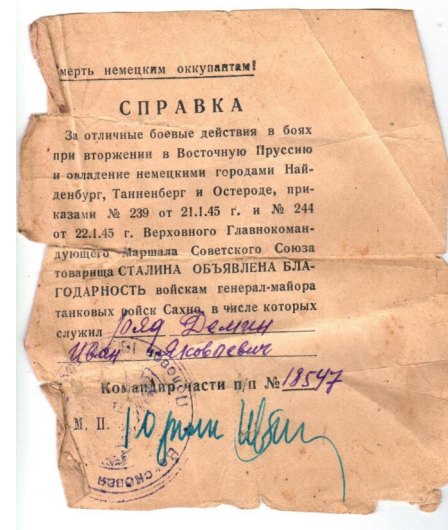 мерть немецким оккупантам!
СПРАВКА
За отличные боевые действия в боях
при вторжении в Восточную Пруссию
и овладение немецкими городами Най-
денбург, Танненберг и Остероде, при-
казами № 239 от 21.1.45 г. и № 244
от 22.1.45 г. Верховного Главнокоман-
дующего Маршала Советского Союза
товарища СТАЛИНА ОБЪЯВЛЕНА БЛА-
ГОДАРНОСТЬ войскам генерал-майора
танковых войск Сахно, в числе которых
служил ряд Демин
Иван Яковлевич
Командир части п/п № 18547
М. П.